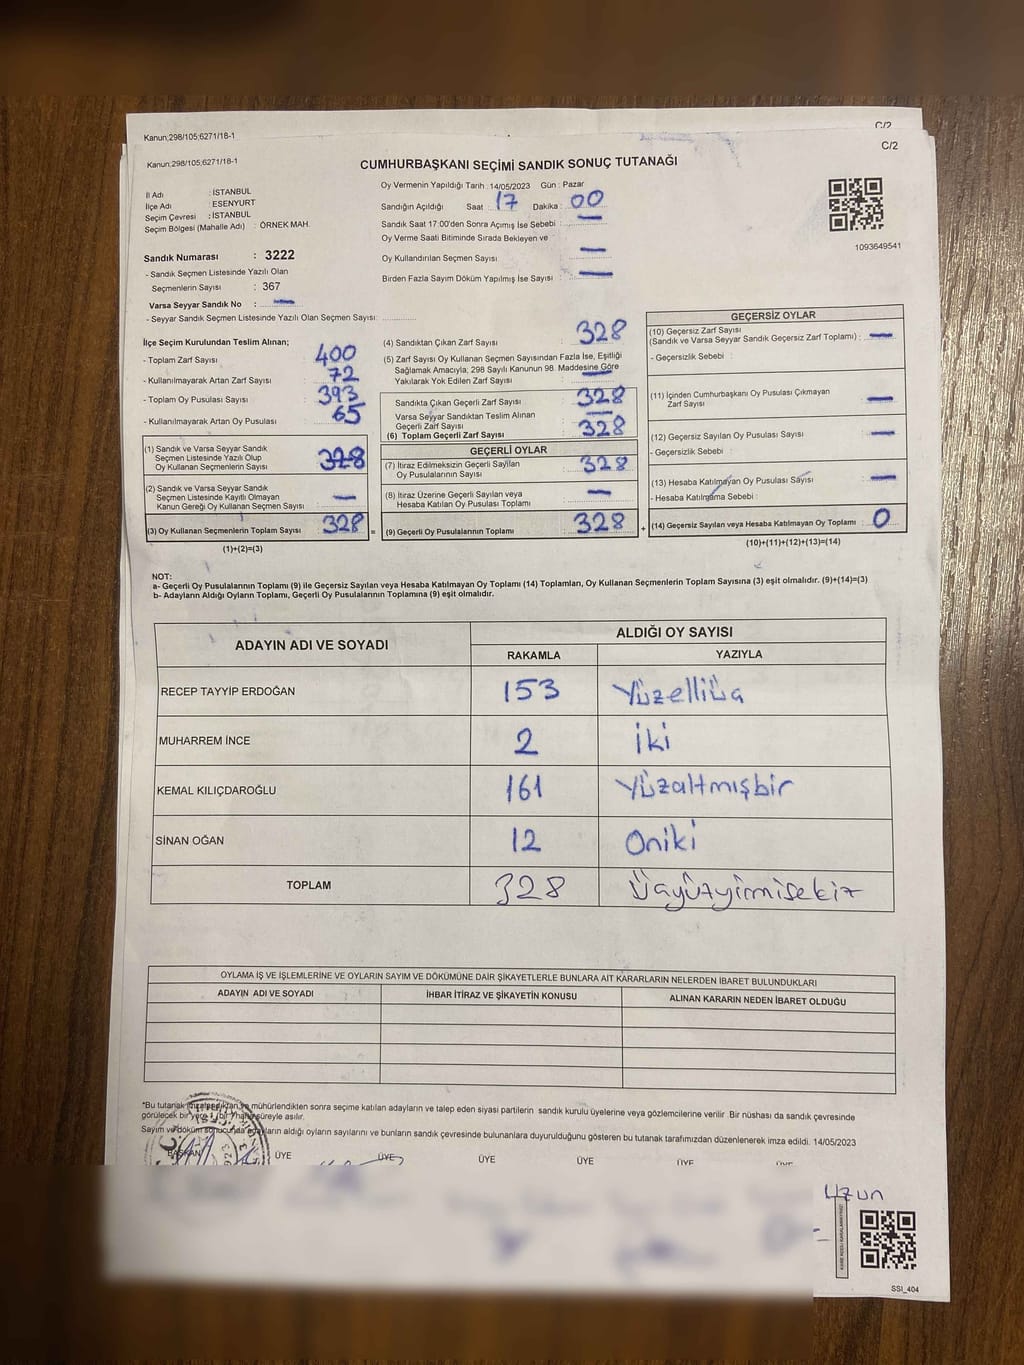 Kanun;298/105;6271/18-1
C/2
Kanun;298/105;6271/18-1
C/2
CUMHURBAŞKANI SEÇİMİ SANDIK SONUÇ TUTANAĞI
İl Adı : İSTANBUL
İlçe Adı : ESENYURT
Seçim Çevresi : İSTANBUL
Seçim Bölgesi (Mahalle Adı) : ÖRNEK MAH.
Sandık Numarası : 3222
- Sandık Seçmen Listesinde Yazılı Olan
Seçmenlerin Sayısı : 367
Varsa Seyyar Sandık No : —
- Seyyar Sandık Seçmen Listesinde Yazılı Olan Seçmen Sayısı:
Oy Vermenin Yapıldığı Tarih : 14/05/2023 Gün : Pazar
Sandığın Açıldığı Saat : 17 Dakika : 00
Sandık Saat 17:00'den Sonra Açımış İse Sebebi : —
Oy Verme Saati Bitiminde Sırada Bekleyen ve
Oy Kullandırılan Seçmen Sayısı —
Birden Fazla Sayım Döküm Yapılmış İse Sayısı : —
1093649541
İlçe Seçim Kurulundan Teslim Alınan;
- Toplam Zarf Sayısı 400
- Kullanılmayarak Artan Zarf Sayısı 72
- Toplam Oy Pusulası Sayısı 393
- Kullanılmayarak Artan Oy Pusulası 65
(1) Sandık ve Varsa Seyyar Sandık
Seçmen Listesinde Yazılı Olup
Oy Kullanan Seçmenlerin Sayısı 328
(2) Sandık ve Varsa Seyyar Sandık
Seçmen Listesinde Kayıtlı Olmayan
Kanun Gereği Oy Kullanan Seçmen Sayısı —
(3) Oy Kullanan Seçmenlerin Toplam Sayısı 328 =
(1)+(2)=(3)
(4) Sandıktan Çıkan Zarf Sayısı 328
(5) Zarf Sayısı Oy Kullanan Seçmen Sayısından Fazla İse, Eşitliği
Sağlamak Amacıyla; 298 Sayılı Kanunun 98. Maddesine Göre
Yakılarak Yok Edilen Zarf Sayısı —
Sandıkta Çıkan Geçerli Zarf Sayısı 328
Varsa Seyyar Sandıktan Teslim Alınan
Geçerli Zarf Sayısı —
(6) Toplam Geçerli Zarf Sayısı 328
GEÇERLİ OYLAR
(7) İtiraz Edilmeksizin Geçerli Sayılan
Oy Pusulalarının Sayısı 328
(8) İtiraz Üzerine Geçerli Sayılan veya
Hesaba Katılan Oy Pusulası Toplamı —
(9) Geçerli Oy Pusulalarının Toplamı 328 +
GEÇERSİZ OYLAR
(10) Geçersiz Zarf Sayısı
(Sandık ve Varsa Seyyar Sandık Geçersiz Zarf Toplamı) : —
- Geçersizlik Sebebi :
(11) İçinden Cumhurbaşkanı Oy Pusulası Çıkmayan
Zarf Sayısı —
(12) Geçersiz Sayılan Oy Pusulası Sayısı —
- Geçersizlik Sebebi :
(13) Hesaba Katılmayan Oy Pusulası Sayısı —
- Hesaba Katılmama Sebebi :
(14) Geçersiz Sayılan veya Hesaba Katılmayan Oy Toplamı : 0
(10)+(11)+(12)+(13)=(14)
NOT:
a- Geçerli Oy Pusulalarının Toplamı (9) ile Geçersiz Sayılan veya Hesaba Katılmayan Oy Toplamı (14) Toplamları, Oy Kullanan Seçmenlerin Toplam Sayısına (3) eşit olmalıdır. (9)+(14)=(3)
b- Adayların Aldığı Oyların Toplamı, Geçerli Oy Pusulalarının Toplamına (9) eşit olmalıdır.
ADAYIN ADI VE SOYADI ALDIĞI OY SAYISI
RAKAMLA YAZIYLA
RECEP TAYYİP ERDOĞAN 153 Yüzelliüç
MUHARREM İNCE 2 İki
KEMAL KILIÇDAROĞLU 161 Yüzaltmışbir
SİNAN OĞAN 12 Oniki
TOPLAM 328 Üçyüzyirmisekiz
OYLAMA İŞ VE İŞLEMLERİNE VE OYLARIN SAYIM VE DÖKÜMÜNE DAİR ŞİKAYETLERLE BUNLARA AİT KARARLARIN NELERDEN İBARET BULUNDUKLARI
ADAYIN ADI VE SOYADI İHBAR İTİRAZ VE ŞİKAYETİN KONUSU ALINAN KARARIN NEDEN İBARET OLDUĞU
*Bu tutanak imzalandıktan ve mühürlendikten sonra seçime katılan adayların ve talep eden siyasi partilerin sandık kurulu üyelerine veya gözlemcilerine verilir. Bir nüshası da sandık çevresinde
görülecek bir yere 1 (bir) hafta süreyle asılır.
Sayım ve döküm sonucunda adayların aldığı oyların sayılarını ve bunların sandık çevresinde bulunanlara duyurulduğunu gösteren bu tutanak tarafımızdan düzenlenerek imza edildi. 14/05/2023
BAŞKAN ÜYE ÜYE ÜYE ÜYE ÜYE ÜYE
Uzun
SSI_404